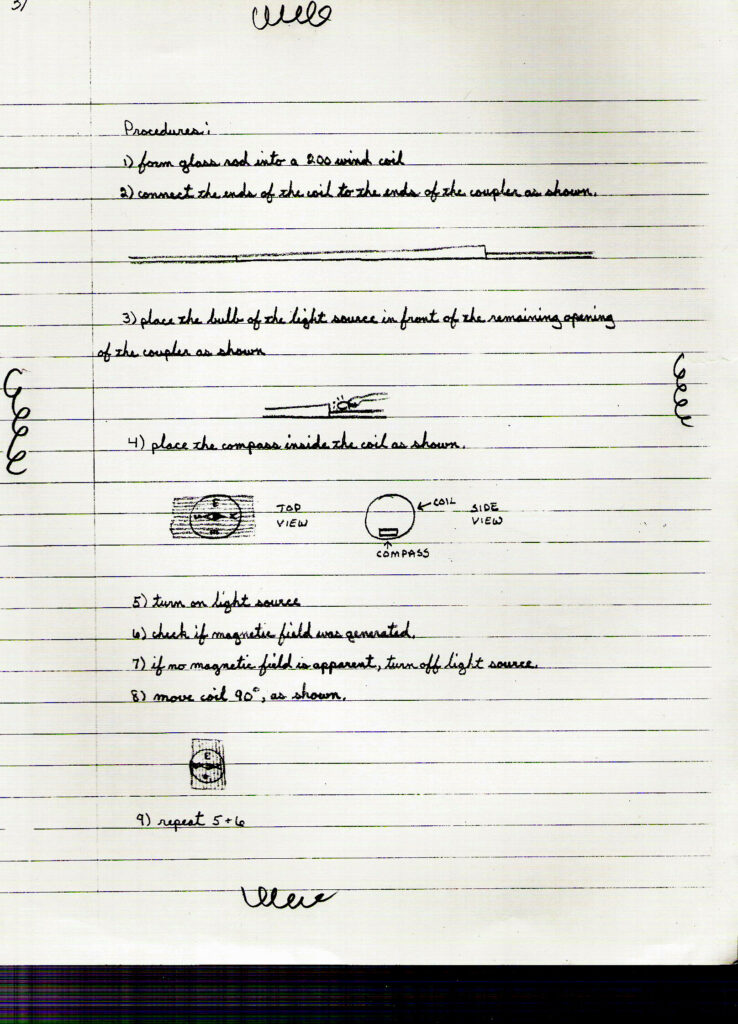 3)
Procedures:
1) form glass rod into a 200 wind coil
2) connect the ends of the coil to the ends of the coupler as shown.
3) place the bulb of the light source in front of the remaining opening
of the coupler as shown
4) place the compass inside the coil as shown.
E
TOP
VIEW
COIL
SIDE
VIEW
COMPASS
5) turn on light source
6) check if magnetic field was generated.
7) if no magnetic field is apparent, turn off light source.
8) move coil 90°, as shown.
E
9) repeat 5+6